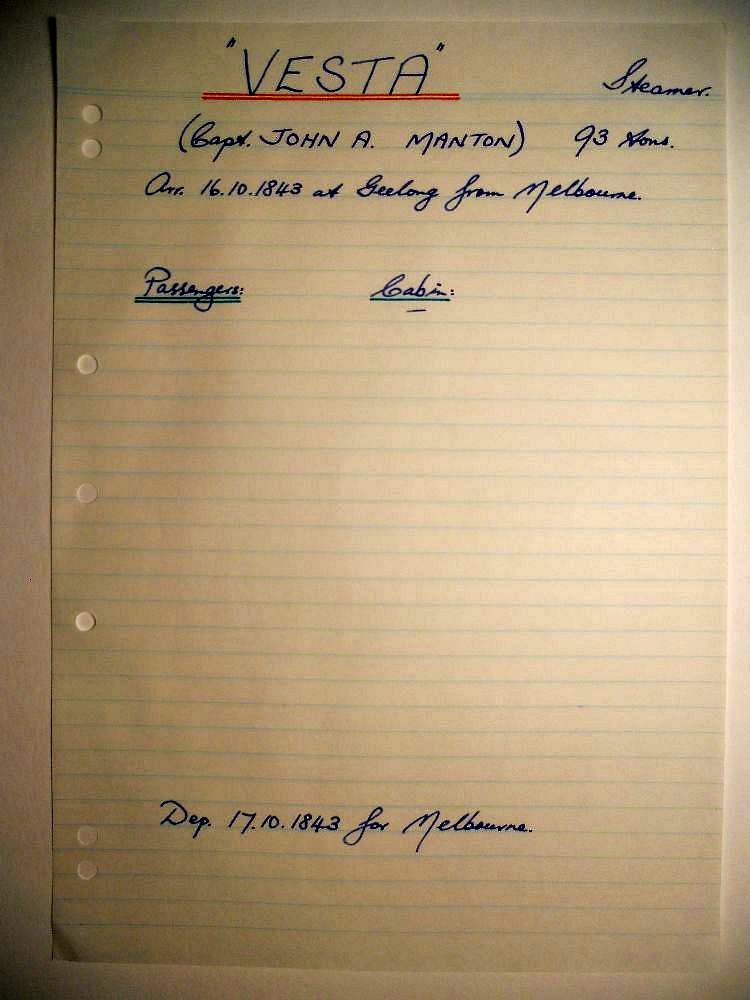 "VESTA" Steamer.
(Capt. JOHN A. MANTON) 93 tons.
Arr. 16.10.1843 at Geelong from Melbourne.
Passengers: Cabin:
—
Dep. 17.10.1843 for Melbourne.